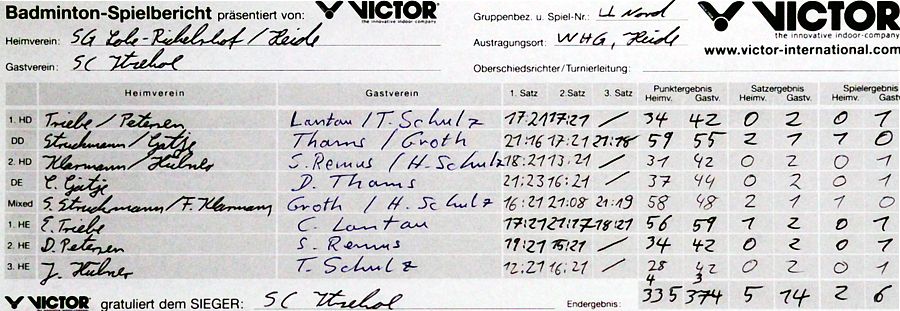 Badminton-Spielbericht präsentiert von: VICTOR the innovative indoor-company Gruppenbez. u. Spiel-Nr.: LL Nord VICTOR the innovative indoor-company
Heimverein: SG Lohe-Rickelshof / Heide Austragungsort: WHG, Heide www.victor-international.com
Gastverein: SC Itzehol Oberschiedsrichter/Turnierleitung:
Heimverein Gastverein 1. Satz 2.Satz 3. Satz Punktergebnis Heimv. Gastv. Satzergebnis Heimv. Gastv. Spielergebnis Heimv. Gastv.
1. HD Triebe / Petersen Lantau / T. Schulz 17:21 17:21 / 34 42 0 2 0 1
DD Struchmann / Gätje Thams / Groth 21:16 17:21 21:18 59 55 2 1 1 0
2. HD Klarmann / Hübner S. Remus / H. Schulz 18:21 13:21 / 31 42 0 2 0 1
DE C. Gätje D. Thams 21:23 16:21 / 37 44 0 2 0 1
Mixed S. Struchmann / F. Klarmann Groth / H. Schulz 16:21 21:08 21:19 58 48 2 1 1 0
1. HE E. Triebe C. Lantau 17:21 21:17 18:21 56 59 1 2 0 1
2. HE D. Petersen S. Remus 19:21 15:21 / 34 42 0 2 0 1
3. HE J. Hübner T. Schulz 12:21 16:21 / 28 42 0 2 0 1
4 3
VICTOR gratuliert dem SIEGER: SC Itzehol Endergebnis: 335 374 5 14 2 6